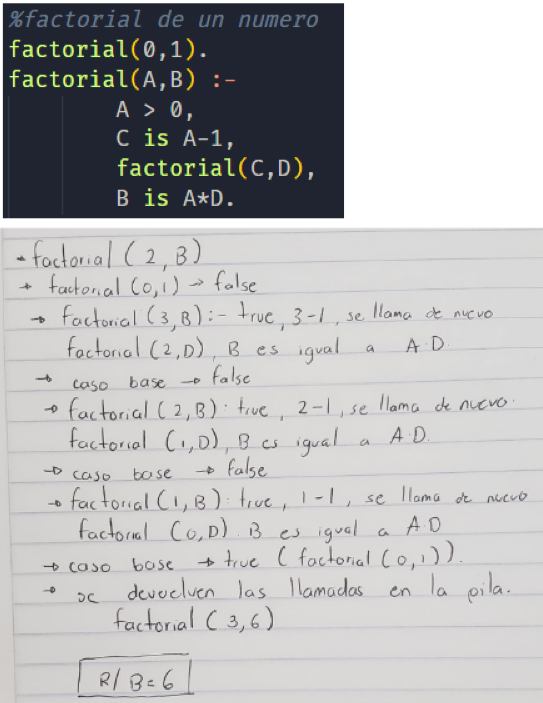 %factorial de un numero
factorial(0,1).
factorial(A,B) :-
A > 0,
C is A-1,
factorial(C,D),
B is A*D.
- factorial (2, B)
→ factorial (0,1) → false
→ factorial (3, B):- true, 3-1, se llama de nuevo
factorial (2, D), B es igual a A·D.
→ caso base → false
→ factorial (2, B): true, 2-1, se llama de nuevo.
factorial (1, D), B es igual a A·D.
→ caso base → false
→ factorial (1, B): true, 1-1, se llama de nuevo
factorial (0, D). B es igual a A·D
→ caso base → true (factorial (0,1)).
→ se devuelven las llamadas en la pila.
factorial (3,6)
R/ B=6